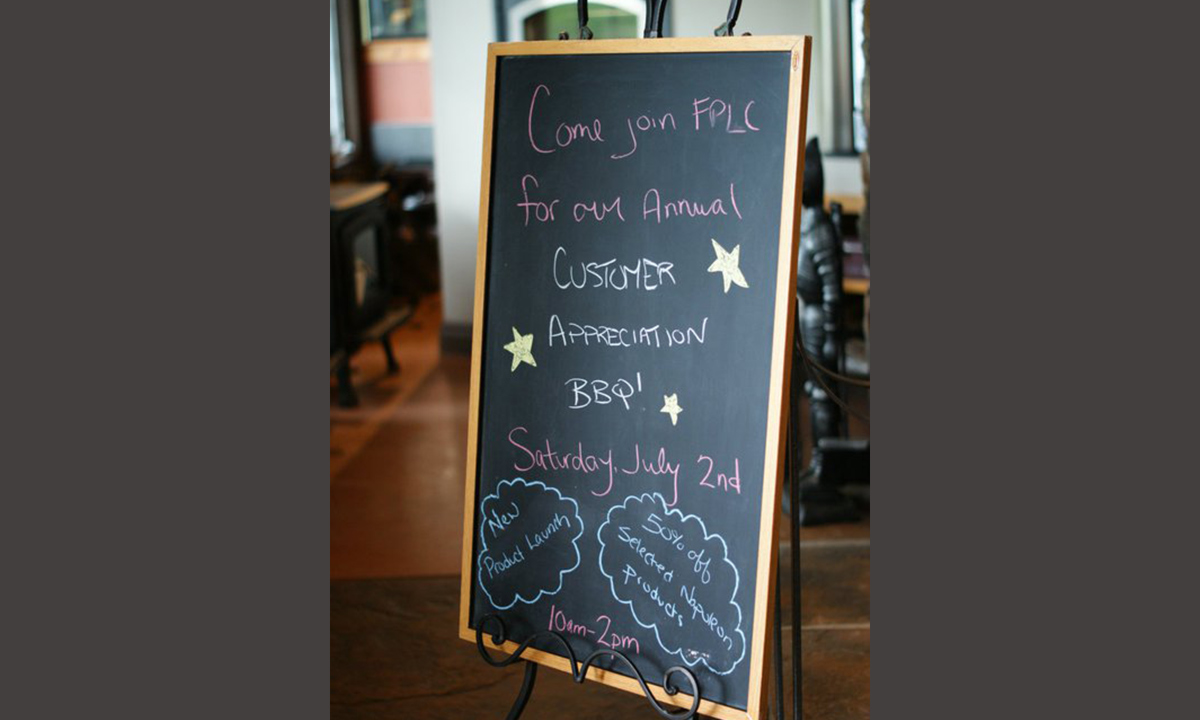 Come join FPLC
for our Annual
CUSTOMER
APPRECIATION
BBQ!
Saturday, July 2nd
New
Product Launch
50% off
Selected Napoleon
Products
10am-2pm